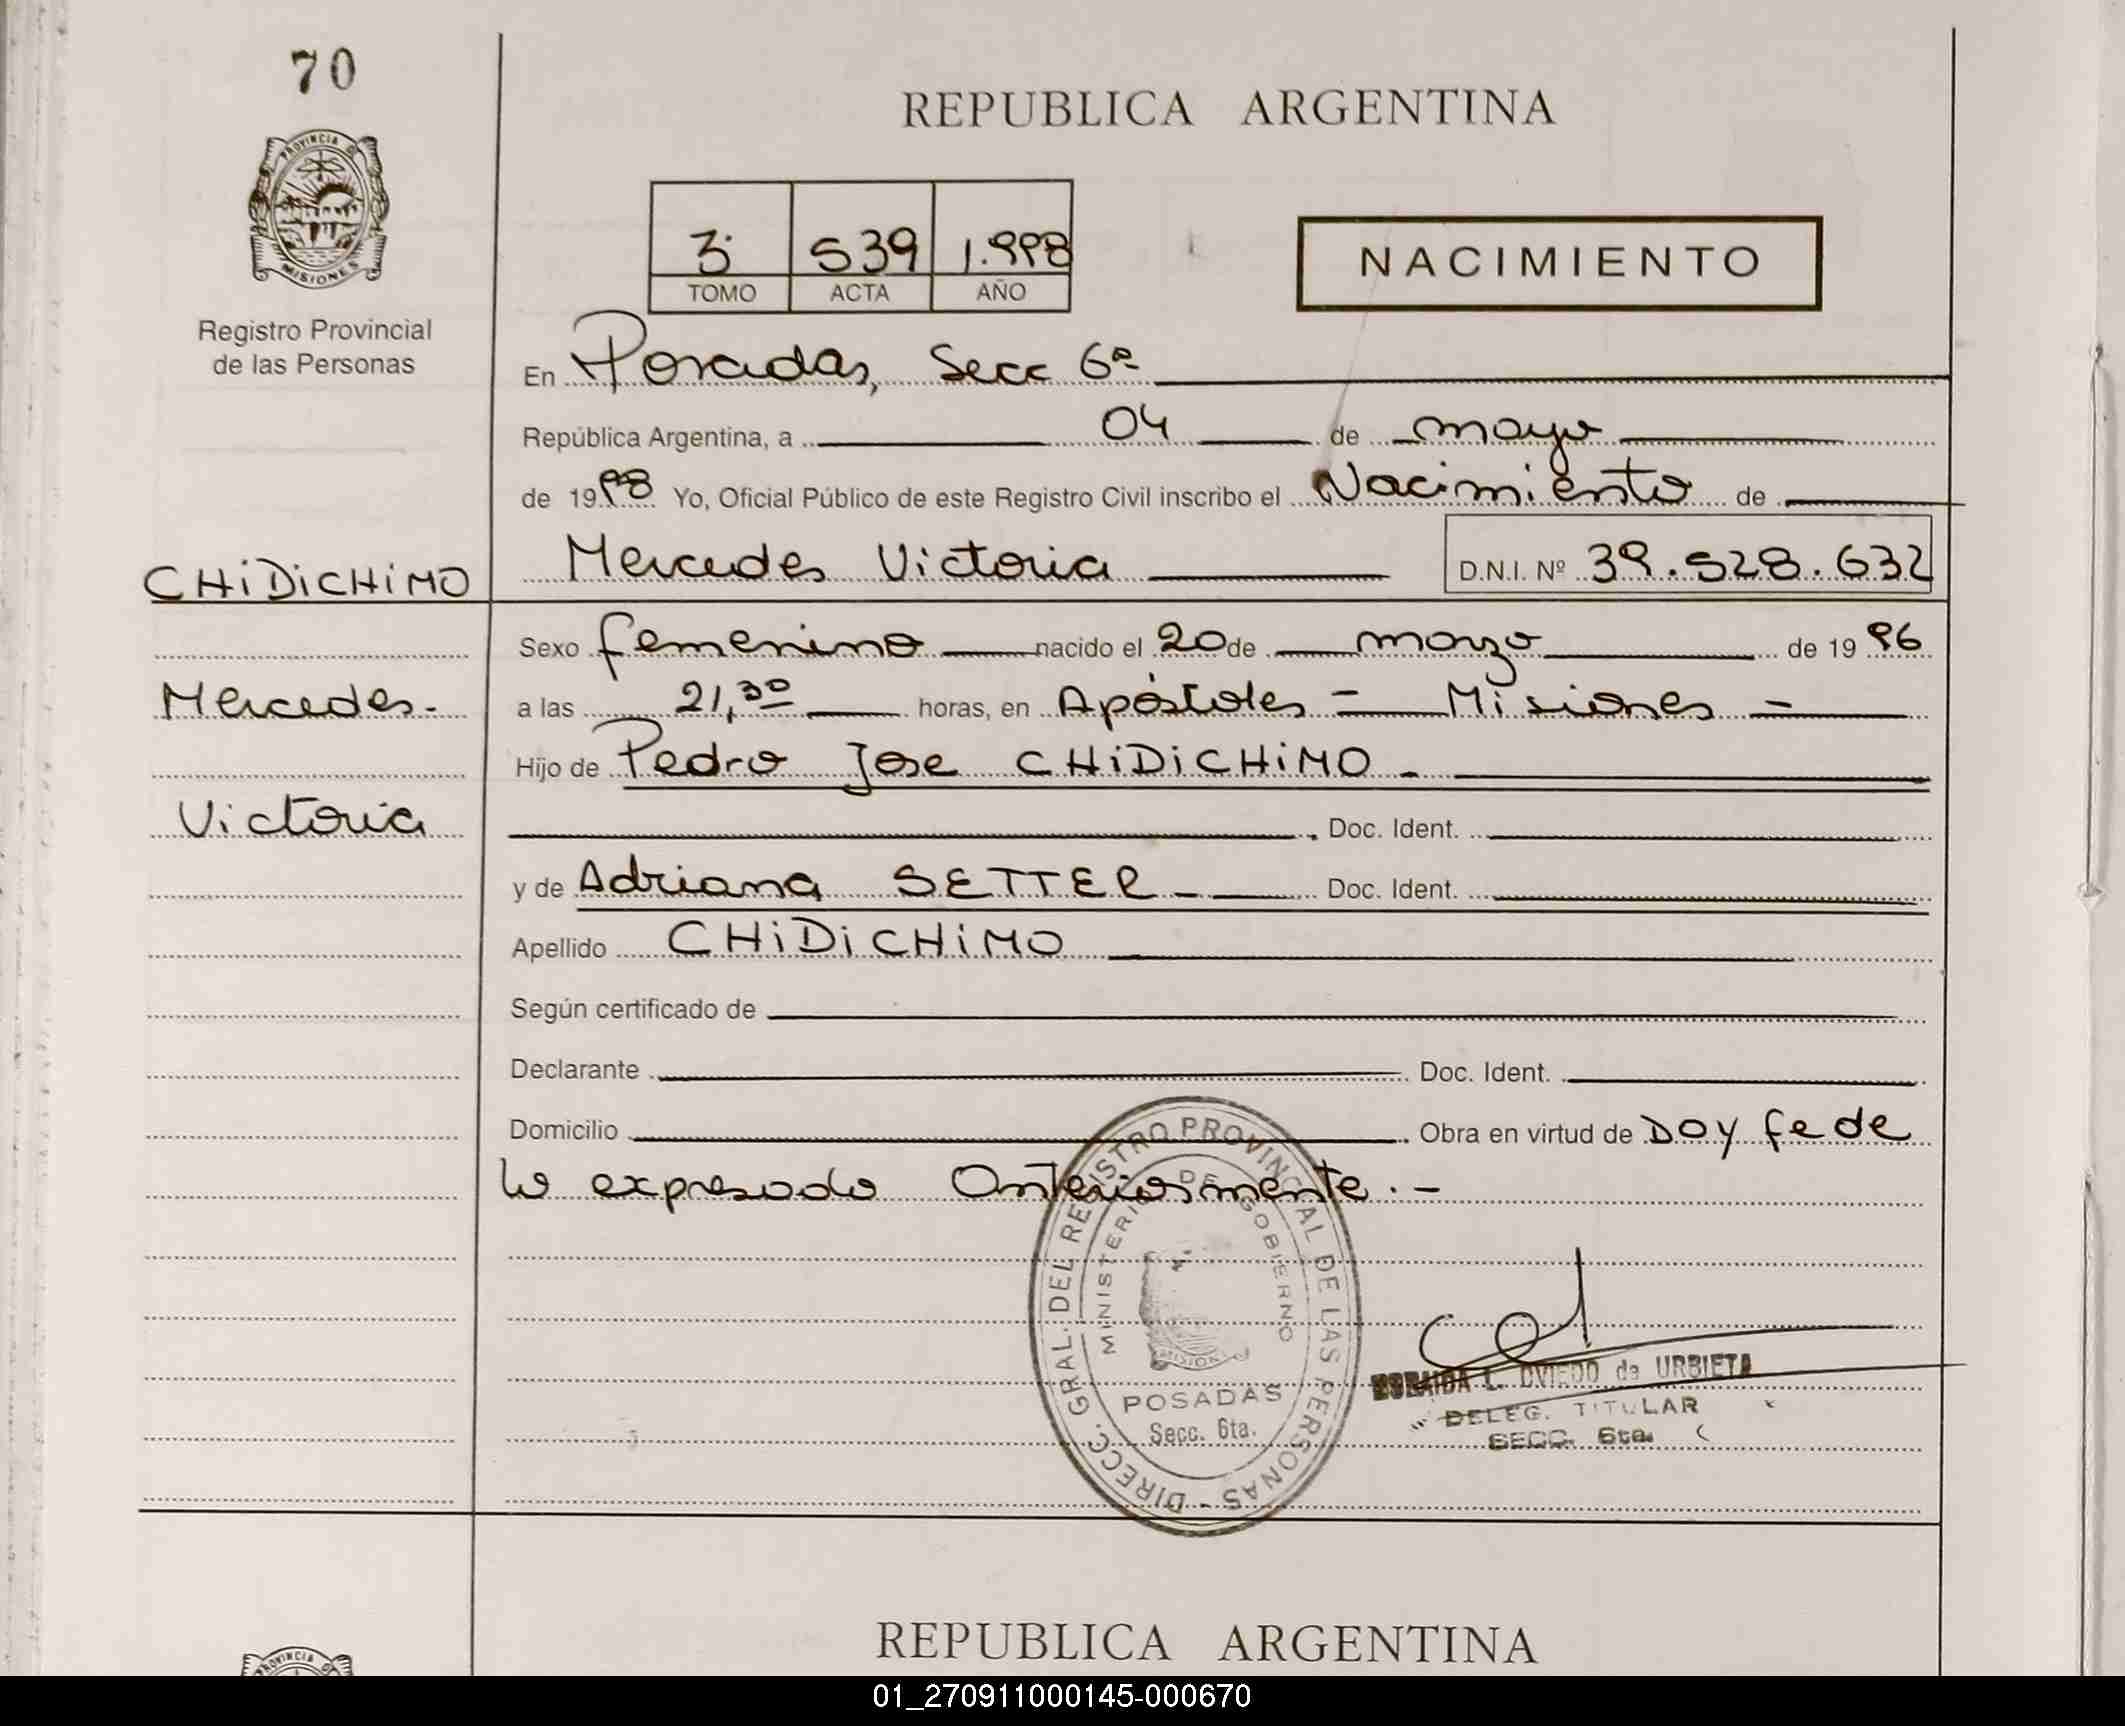 70
REPUBLICA ARGENTINA
PROVINCIA DE
MISIONES
Registro Provincial
de las Personas
3 539 1.998
TOMO ACTA AÑO
NACIMIENTO
En Posadas, Secc 6ª
República Argentina, a 04 de mayo
de 1998 Yo, Oficial Público de este Registro Civil inscribo el Nacimiento de
CHiDiCHiMO Mercedes Victoria D.N.I. Nº 39.528.632
Sexo femenino nacido el 20 de marzo de 1996
Mercedes.- a las 21,30 horas, en Apóstoles = Misiones =
Hijo de Pedro Jose CHiDiCHiMO -
Victoria Doc. Ident.
y de Adriana SETTER - Doc. Ident.
Apellido CHiDiCHiMO
Según certificado de
Declarante Doc. Ident.
Domicilio Obra en virtud de DOY fe de
lo expresado Anteriormente.-
DIRECC. GRAL. DEL REGISTRO PROVINCIAL DE LAS PERSONAS -
MINISTERIO DE GOBIERNO
MISIONES
POSADAS
Secc. 6ta.
L. OVIEDO de URBIETA
DELEG. TITULAR
SECC. 6ta.
REPUBLICA ARGENTINA
PROVINCIA DE
01_270911000145-000670